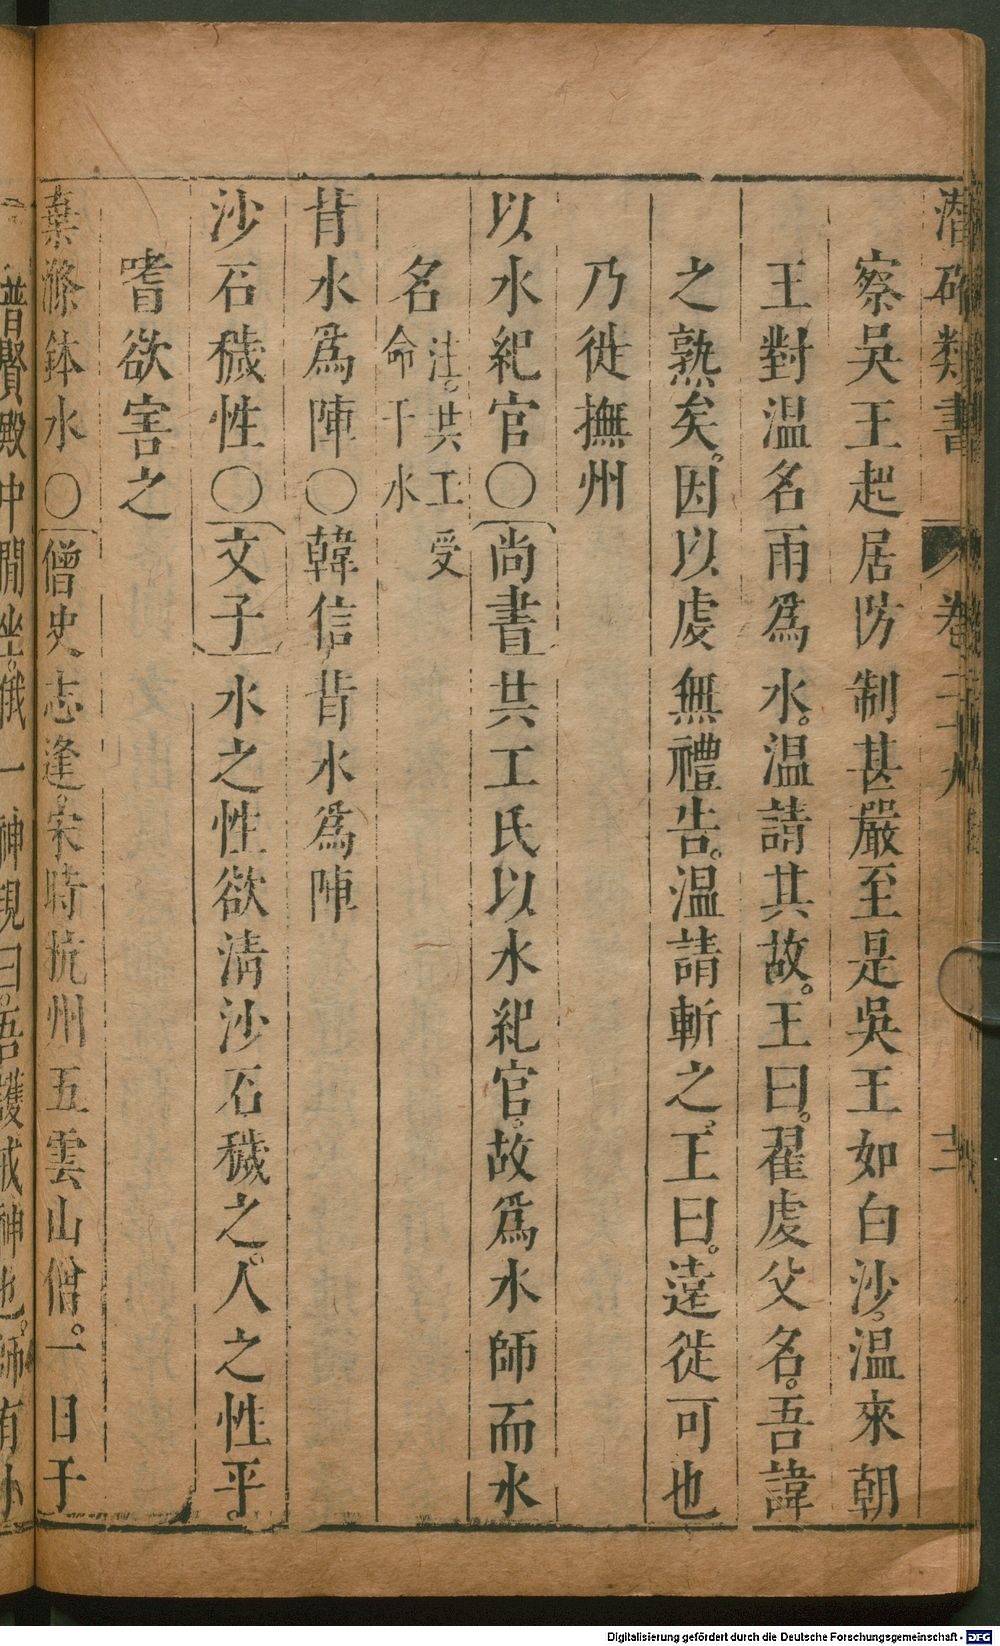 潛確類書 卷二十九 十二
察吳王起居防制甚嚴至是吳王如白沙。温來朝
王對温名雨爲水。温請其故。王曰。翟虔父名。吾諱
之熟矣。因以虔無禮告。温請斬之。王曰。遠徙可也
乃徙撫州
以水紀官○尚書共工氏以水紀官。故爲水師而水
名注。共工受命于水
背水爲陣○韓信背水爲陣
沙石穢性○文子水之性欲清沙石穢之。人之性平。
嗜欲害之
棄滌鉢水○僧史志逢。宋時杭州五雲山僧。一日于
普賢殿中閒坐。俄一神現曰。吾護戒神也。師有小
Digitalisierung gefördert durch die Deutsche Forschungsgemeinschaft - DFG